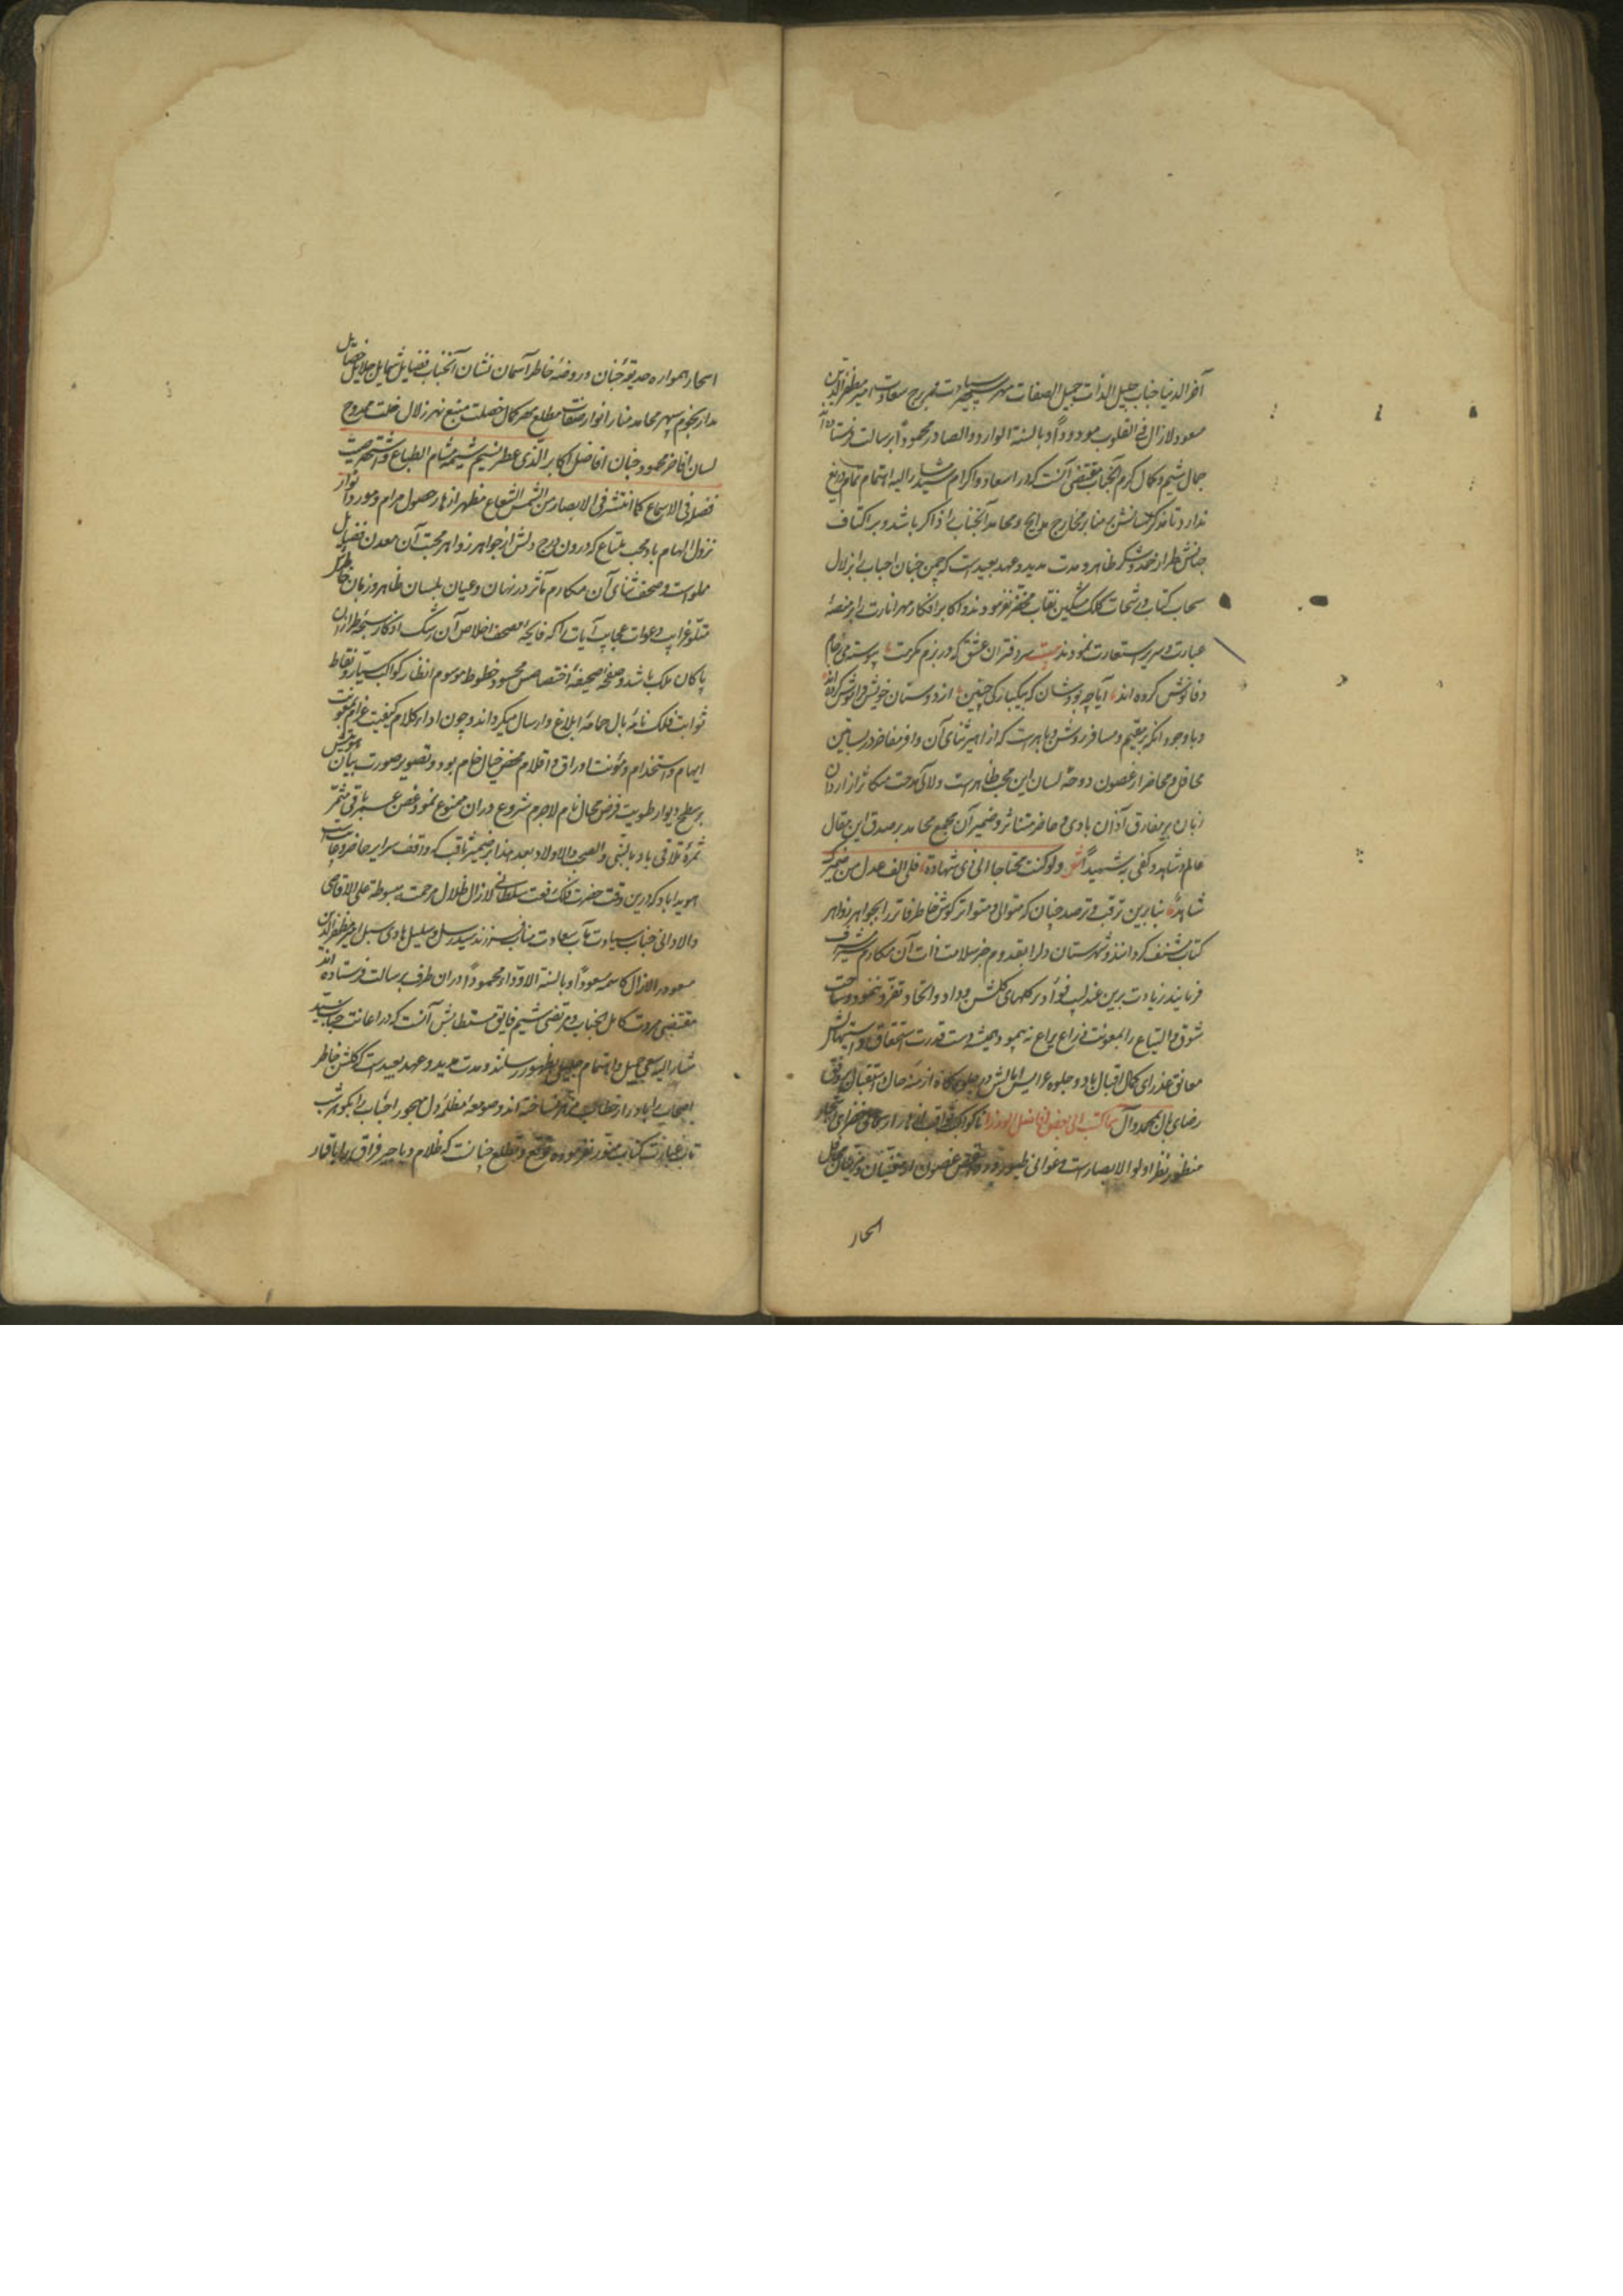 آخر الدنیا جناب جلیل الذات جمیل الصفات مهر سپهر سیادت قمر برج سعادت امیر مظفر الدین
مسعود لازال فی القلوب مودوداً و بالسنة الوارد و الصادر محموداً برسالت فرستاد
جمال شیم و کمال کرم آنجناب مقتضی آنست که در اسعاد و اکرام سید مشار الیه اهتمام تمام دریغ
ندارد تا مذکر لسانش بر منابر مخارج مدایح و محامد آنجناب را ذاکر باشد و بر اکتاف
جنانش طراز حمد و شکر ظاهر و مدت مدید و عهد بعیدست که چمن جنان احباب را از زلال
سحاب کتاب و رشحات کلک مشکین نقاب مخضر نفرمودند و ابکار افکار مهر انارت را بر منصهٔ
عبارت و سریر استعارت ننمودند بیت سردفتران عشق که در بزم مکرمت پیوسته می ز جام
وفا نوش کرده اند آیا چه بودشان که بیکبارگی چنین از دوستان خویش فراموش کرده اند
و با وجود آنکه بر مقیم و مسافر روشن و باهرست که ازاهیر ثنای آن وافر مفاخر در بساتین
محافل و محاضر از غصون دوحهٔ لسان این محب ظاهرست و لآلی مدحت مکاثر از اردان
زبان بر مفارق آذان بادی و حاضر متناثر و ضمیر آن مجمع محامد بر صدق این مقال
عالم و شاهد و کفی به شهیداً شعر ولو کنت محتاجا الی ذی شهادة فلی الف عدل من ضمیرک
شاهد بنابرین ترقب و ترصد چنان که متوالی و متواتر گوش خاطر فاتر را بجواهر زواهر
کتاب مشنف گردانند و شهرستان دلرا بقدوم خبر سلامت ذات آن مکارم شرف مشرف
فرمایند زیادت برین عندلیب فؤاد بر گلهای گلشن وداد و اتحاد تغرد ننمود و ساحت
شوق و التیاع را بمعونت ذراع یراع نه پیمود همیشه دست قدرت استحقاق و استیهالش
معانق عذرای کمال اقبال باد و جلوه عرایس امالش در جلوه گاه ازمنهٔ حال و استقبال بر وفق
رضای بال بمحمد و آل مما کتب الی بعض افاضل الوزرا تا کواکب ثواقب ازهار از سمای خضرای اشجار
منظور نظر اولو الابصارست و غوانی طیور بر رءوس غصون
اسحار
اسحار همواره حدیقهٔ جنان و روضهٔ خاطر آسمان نشان آنجناب فضایل شمایل جلایل خصایل
مدار نجوم سپهر محامد منار انوار صفات مطلع مهر کمال خصلت منبع نهر زلال خلت ممدوح
لسان افاخر محمود جنان افاضل و اکابر الّذی عطر نسیم شیمه مشام الطباع و اشتهر صیت
فضله فی الاسماع کما انتشر فی الابصار من الشمس الشعاع مظهر ازهار حصول مرام و مورد انوار
نزول الهام باد محب ملتاع که درون درج دلش از جواهر زواهر محبت آن معدن فضایل
مملوست و صحف ثنای آن مکارم مآثر در نهان و عیان بلسان ظاهر و زبان خاطر
متلو غرایب دعوات عجایب آیات را که فایحهٔ صحف اخلاص آن رشک اذکار سبحه طرازان
پاکان ملک باشد و صفحهٔ صحیفهٔ اختصاصش محسود خطوط موسوم انظار کواکب سیار و نقاط
ثوابت فلک نامهٔ بال حمامهٔ ابلاغ و ارسال میگرداند و چون اداء کلام کیفیت غرام بمعونت
ایهام و استخدام و مئونت اوراق و اقلام محض خیال خام بود و تصویر صورت بیان هوس نقش
بر سطح دیوار طوبیت فرض محال تام لاجرم شروع دران ممنوع نمود غصن عمر باقی مثمر
ثمرهٔ تلاقی باد بالنبی و الصحب و الاولاد بعد هذا بر ضمیر ثاقب که واقف سرایر حاضر و غایبست
هویدا باد که درین وقت حضرت فلک رفعت سلطانی لازال ظلال مرحمته مبسوطة علی الاقاصی
والادانی جناب سیادت مآب سعادت مناقب فرزند سید رسل و سلیل هادی سبل امیر مظفر الدین
مسعود را لازال کاسمه مسعوداً و بالسنة الاودّاء محموداً دران طرف برسالت فرستاده اند
مقتضی مروت کامل آنجناب و مرتضی شیم فایق مستطابش آنست که در اعانت جناب سید
مشار الیه سعی جمیل و اهتمام جلیل بظهور رسانند و مدت مدید و عهد بعیدست که گلشن خاطر
اصحاب را
تاب عبارت کتاب منور نفرموده و توقع و تطلع چنانست که ظلام دیاجیر فراق را باقمار